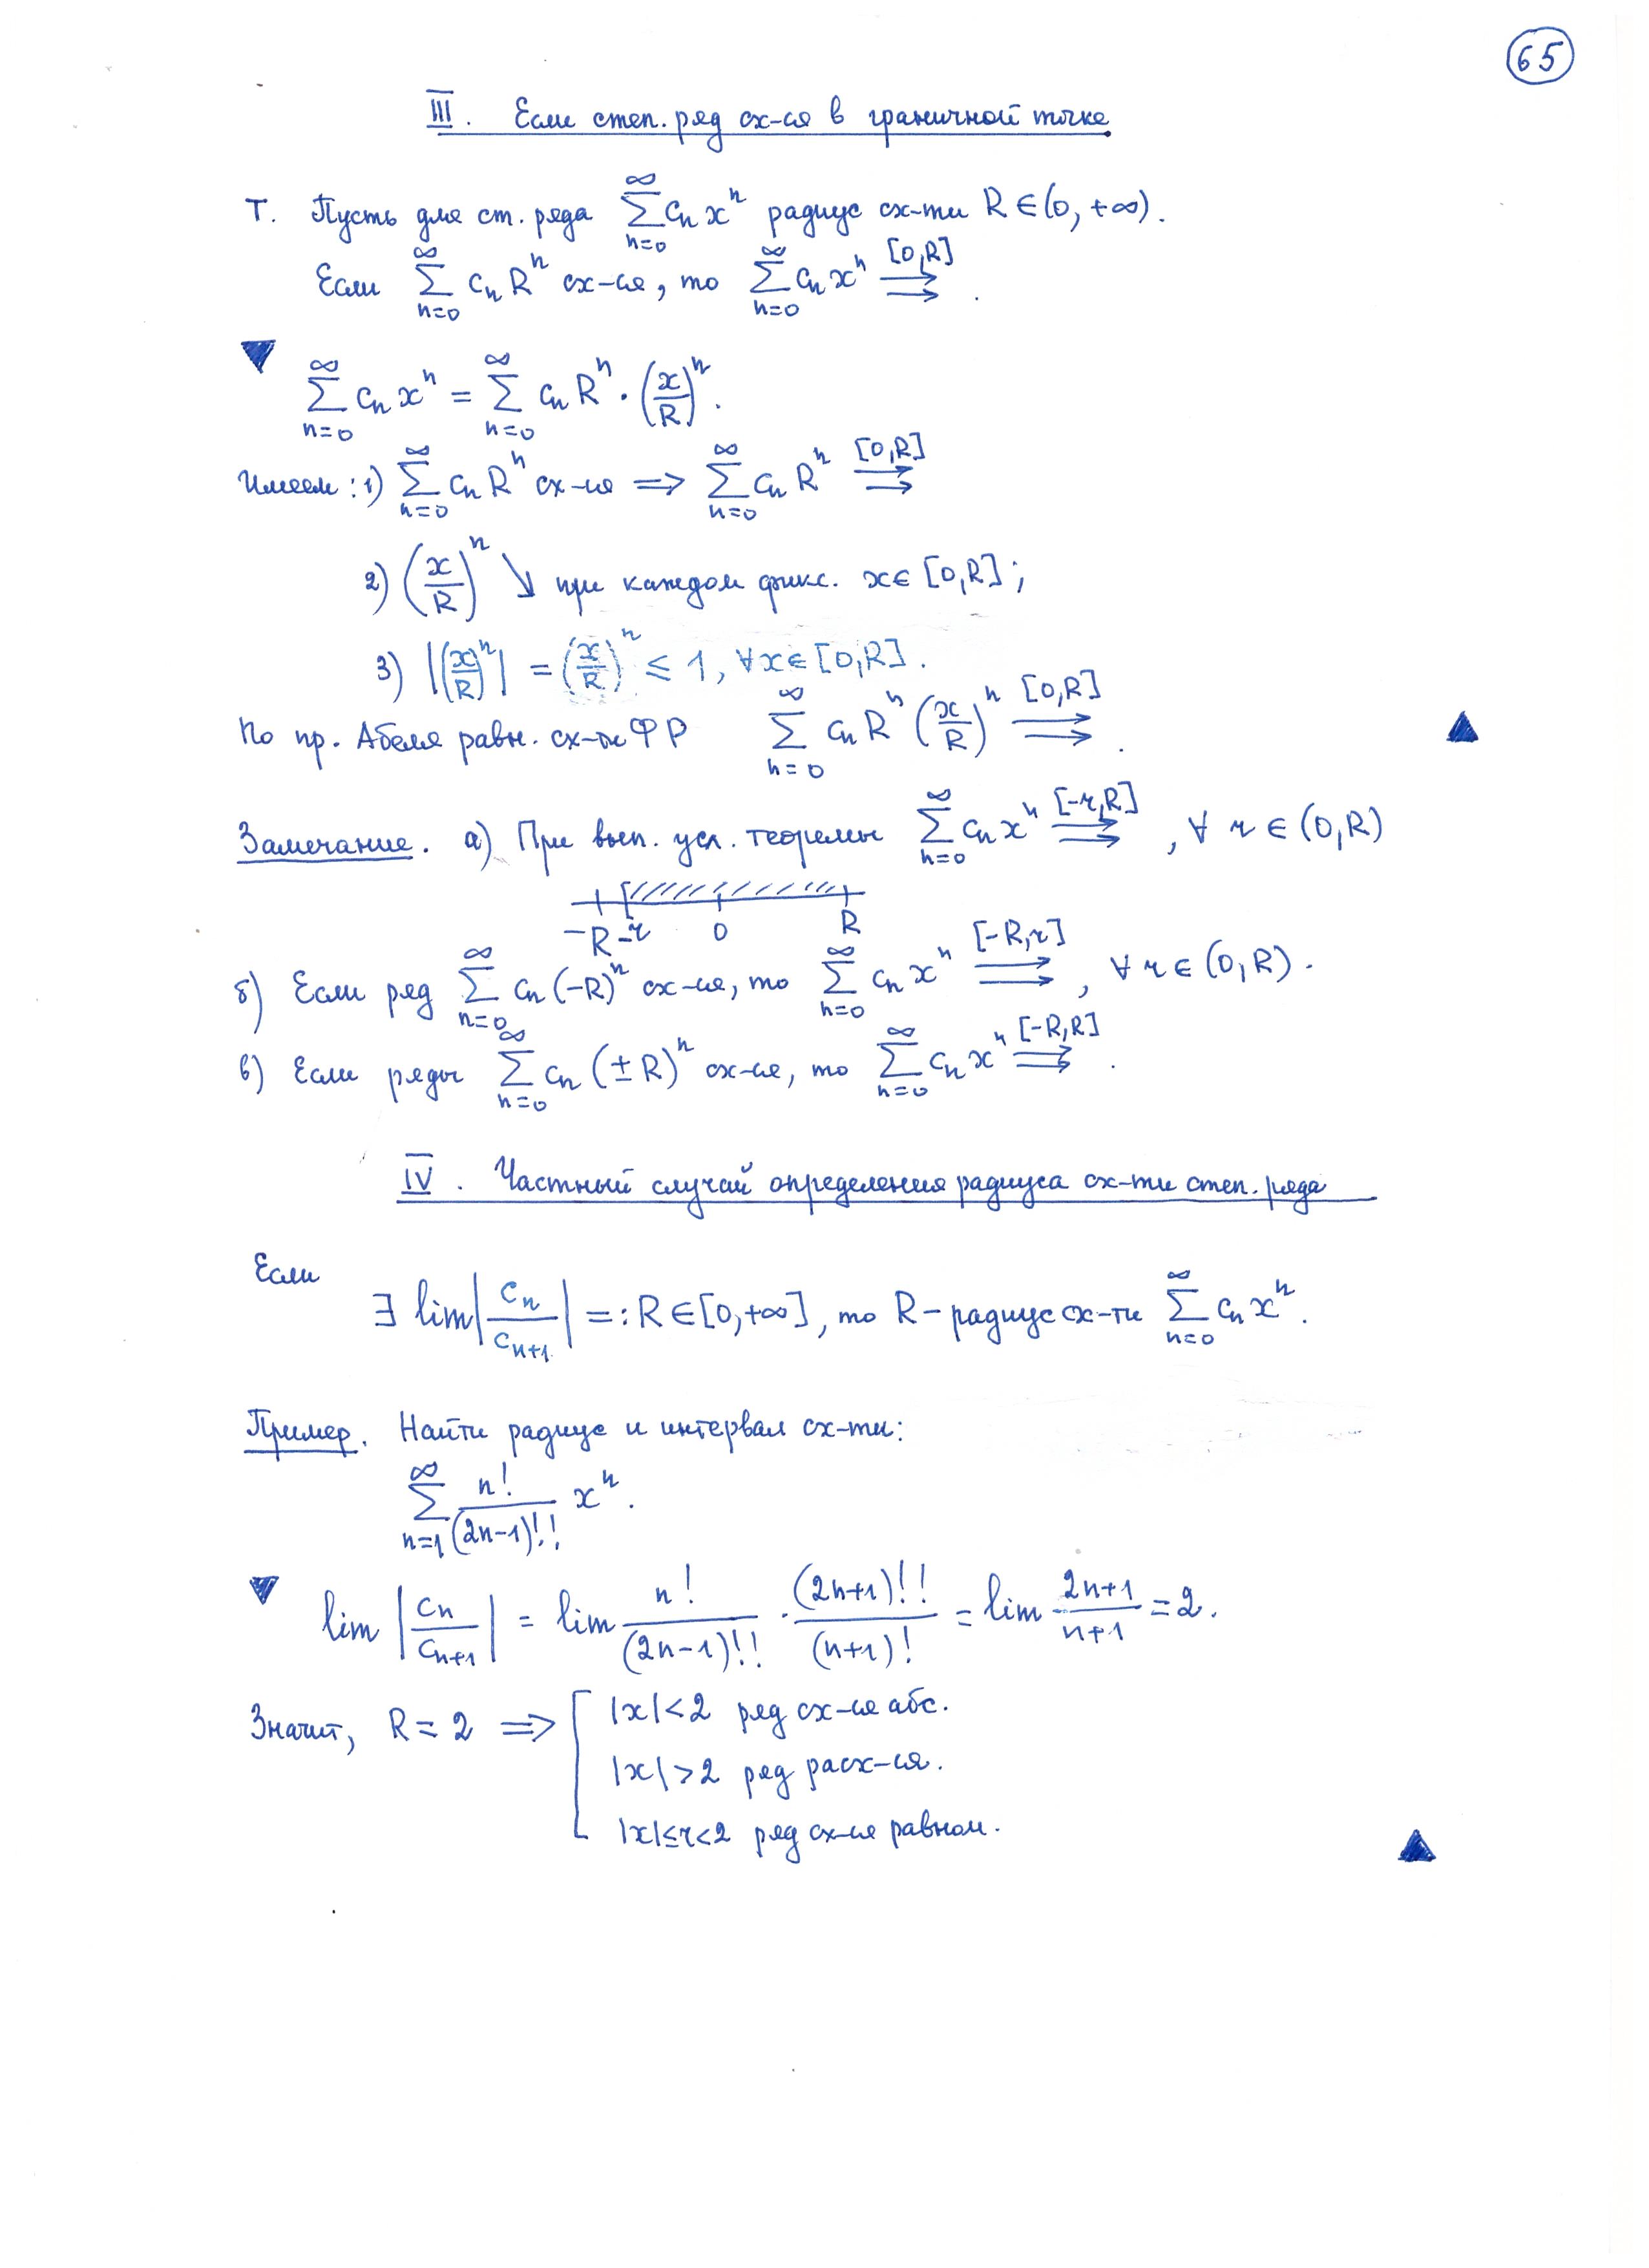 65
III. Если степ. ряд сх-ся в граничной точке.
Т. Пусть для ст. ряда ∑_{n=0}^{∞} c_n x^n радиус сх-ти R ∈ (0, +∞).
Если ∑_{n=0}^{∞} c_n R^n сх-ся, то ∑_{n=0}^{∞} c_n x^n ⇉^{[0,R]}.
▼ ∑_{n=0}^{∞} c_n x^n = ∑_{n=0}^{∞} c_n R^n · (x/R)^n.
Имеем: 1) ∑_{n=0}^{∞} c_n R^n сх-ся ⟹ ∑_{n=0}^{∞} c_n R^n ⇉^{[0,R]}
2) (x/R)^n ↘ при каждом фикс. x ∈ [0,R];
3) |(x/R)^n| = (x/R)^n ≤ 1, ∀x ∈ [0,R].
По пр. Абеля равн. сх-ти ФР ∑_{n=0}^{∞} c_n R^n (x/R)^n ⇉^{[0,R]}. ▲
Замечание. а) При вып. усл. теоремы ∑_{n=0}^{∞} c_n x^n ⇉^{[-r,R]}, ∀ r ∈ (0,R)
-R -r 0 R
б) Если ряд ∑_{n=0}^{∞} c_n (-R)^n сх-ся, то ∑_{n=0}^{∞} c_n x^n ⇉^{[-R,r]}, ∀ r ∈ (0,R).
в) Если ряды ∑_{n=0}^{∞} c_n (±R)^n сх-ся, то ∑_{n=0}^{∞} c_n x^n ⇉^{[-R,R]}.
IV. Частный случай определения радиуса сх-ти степ. ряда
Если
∃ lim |c_n/c_{n+1}| =: R ∈ [0,+∞], то R - радиус сх-ти ∑_{n=0}^{∞} c_n x^n.
Пример. Найти радиус и интервал сх-ти:
∑_{n=1}^{∞} n!/(2n-1)!! x^n.
▼ lim |c_n/c_{n+1}| = lim n!/(2n-1)!! · (2n+1)!!/(n+1)! = lim (2n+1)/(n+1) = 2.
Значит, R = 2 ⟹ [ |x| < 2 ряд сх-ся абс.
|x| > 2 ряд расх-ся.
|x| ≤ r < 2 ряд сх-ся равном. ▲